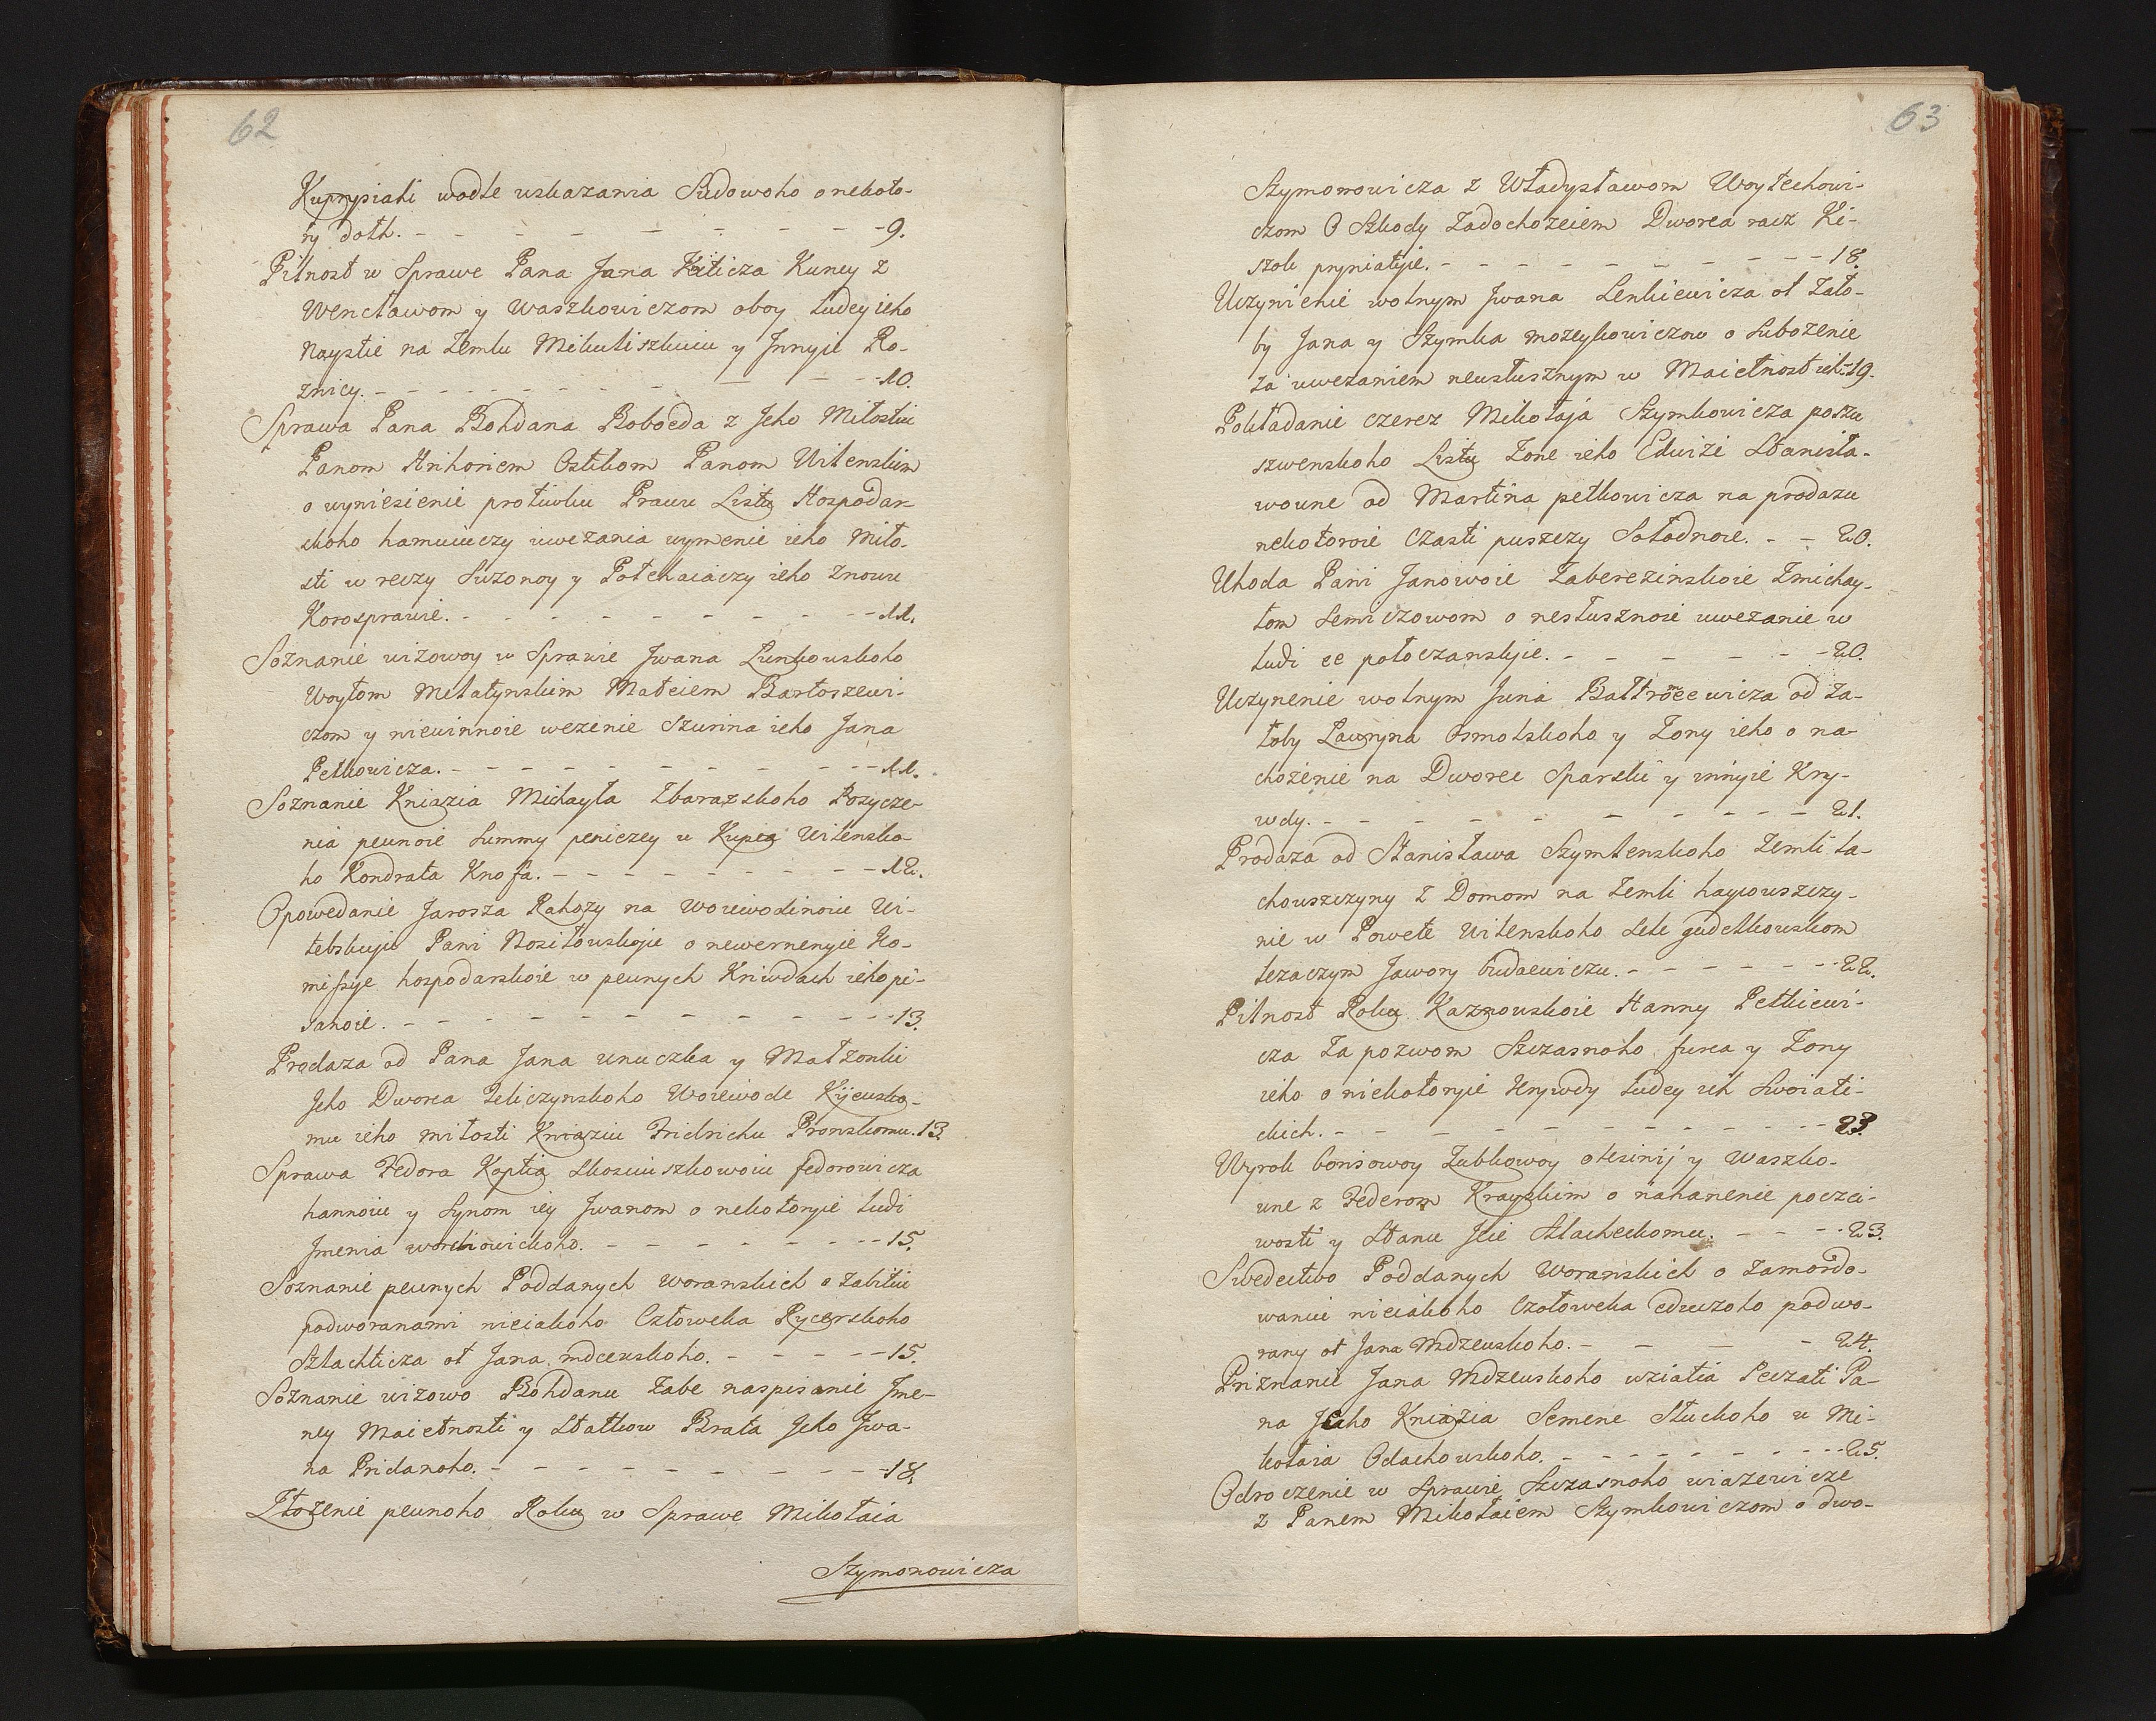 62
Kuprysiaki wodle uskazania Sudowoho o nekoto-
ry dolh. - - - - - - - - 9.
Pilnost w Sprawe Pana Jana Kuncy z
Wencławom y Waszkowiczom oboy Ludey ieho
Nayście na Zemlu Mikuliszkuiu y Innyie Ro-
znicy. - - - - - - - - 10.
Sprawa Pana Bohdana Boboeda z Jeho Miłostiu
Panom Hrihoriem Ostikom Panom Wilenskim
o wyniesienie protiwku Prawu Listu Hospodar-
skoho hamuiuczy uwezania wymenie ieho Miło-
sti w reczy Suzonoy y Potehaiaczy ieho Znowu
Korosprawie. - - - - - - - - 11.
Soznanie wizowoy w Sprawie Jwana Lunkowskoho
Woytom Mitatynskim Mateiem Bartoszewi-
czom y niewinnoie wezenie Szurina ieho Jana
Petkowicza. - - - - - - - - 11.
Soznanie Kniazia Michayła Zbarazskoho Pozycze-
nia pewnoie Summy peniezey u Kupca Wilensko-
ho Kondrata Knofa. - - - - - - - - 12.
Opowedanie Jarosza Rahozy na Woiewodinoiu Wi-
tebskuju Pani Nositowskoje o newernenyie Ko-
missye hospodarskoie w pewnych Kriwdach ieho pi-
sanoie. - - - - - - - - 13.
Prodaza od Pana Jana unuczka y Małzonki
Jeho Dworca Zeliczynskoho Woiewode Kijewsko-
mu ieho miłosti Kniaziu Fridrichu Pronskomu. 13.
Sprawa Fedora Koptia Skosciuszkowoiu fedorowicza
hannoiu y Synom iey Jwanom o nekotoryie ludi
Jmenia worciowickoho. - - - - - - 15.
Soznanie pewnych Poddanych Woranskich o Zabitiu
podworanami nieiakoho Człoweka Rycerskoho
Szlachticza ot Jana mdcewskoho. - - - - - 15.
Soznanie wizowo Bohdanu Zabe naspisanie Jme-
ney Maietnosti y Stattkow Brata Jeho Jwa-
na Pridanoho. - - - - - - - - 18.
Złozenie pewnoho Roku w Sprawe Mikołaia
Szymonowicza
63
Szymonowicza z Władysławom Woytechowi-
czom O Szkody Zadochozeiem Dworca racz Ki-
szok pryniatyie. - - - - - - - - 18.
Uczynienie wolnym Jwana Lenkiewicza ot Zało-
by Jana y Szymka mozeykowiczow o Subozenie
za uwezaniem neusłusznym w Maietnost ich - 19.
Pokładanie czerez Mikołaja Szymkowicza poszu
szwenskoho Listu Zone ieho Edwizi Stanisła-
wowne od Martina petkowicza na prodazu
nekotoroie Czasti puszczy Sołodnoie. - - 20.
Uhoda Pani Janowoie Zaberezinskoie Zmichay-
łom Semiczowom o nesłusznoie uwezanie w
ludi ee połoczanskyie. - - - - - - 20.
Uczynenie wolnym Juria Baltroceewicza od Za-
łoby Lawryna Osmolskoho y Zony ieho o na
chozenie na Dworec Sparski y innyie Kry-
wdy. - - - - - - - - 21.
Prodaza od Stanisława Szymtenskoho Zemli La-
chowszczyny z Domom na Zemli haywuszczy-
nie w Powete Wilenskoho Sele gudelkowskom
lezaczym Jawory Gudaewiczu. - - - - - - 22.
Pilnost Roku Kaznowskoie Hanny Petkiewi-
cza Za pozwom Szczasnoho Jurca y Zony
ieho o niekotoryie Krywdy Ludey ich Swoiati-
ckich. - - - - - - - - 23.
Wyrok borisowoy Zubkowoy olesinij y Waszko-
une z Federom Krayskim o nahanenie poczci-
wosti y Stanu Jeie Szlacheckomu. - - - - 23.
Swedectwo Poddanych Woranskich o Zamordo-
waniu nieiakoho Czołoweka educzoho podwo-
rany ot Jana Mdzewskoho. - - - - 24.
Priznanie Jana Mdzewskoho wziatia Peczati Pa-
na Jeho Kniazia Semene Słuckoho u Mi-
kołaia Odachowskoho. - - - - - - - - 25.
Odroczenie w Sprawie Szczasnoho wiazewicze
z Panem Mikołaiem Szymkowiczom o dwo-